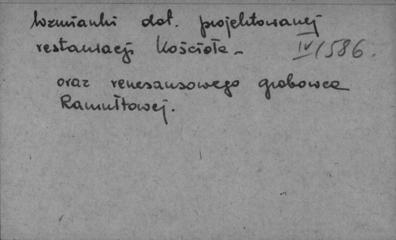 Wzmianki dot. projektowanej
restauracji Kościoła - IV/586.
oraz renesansowego grobowca
Ramułtowej.